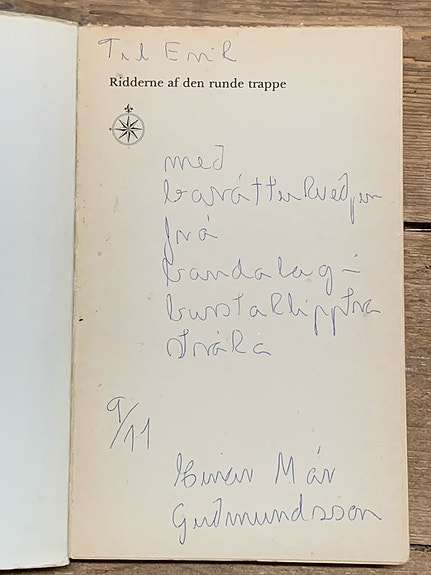 Til Erik
Ridderne af den runde trappe
með
baráttukveðju
frá
bandalagi
burstaklipptra
stráka
9/11
Einar Már
Guðmundsson